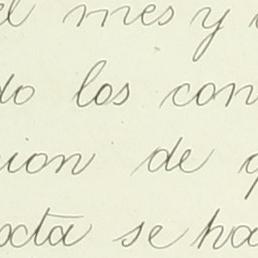 el mes y
do los con
ion de q
xta se ha